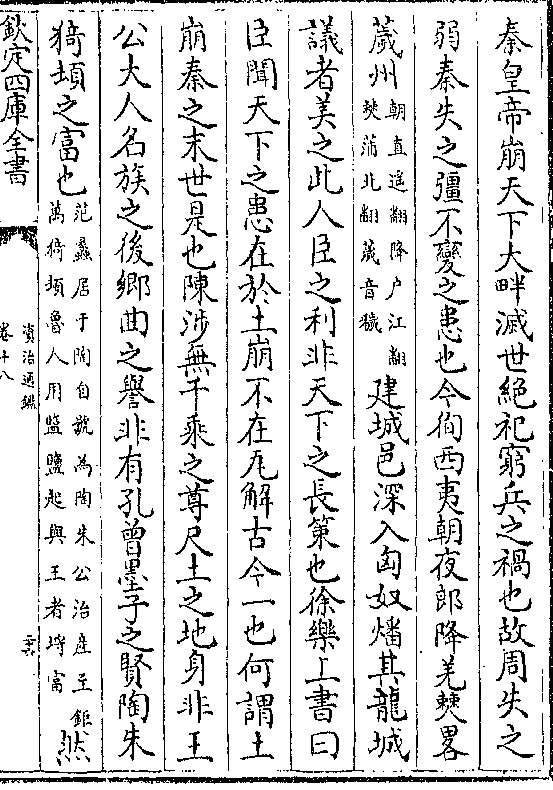 秦皇帝崩天下大畔滅世絶祀窮兵之禍也故周失之
弱秦失之彊不變之患也今徇西夷朝夜郎降羌僰畧
薉州
朝直遥翻降户江翻
僰蒲北翻薉音穢
建城邑深入匈奴燔其龍城
議者美之此人臣之利非天下之長策也徐樂上書曰
臣聞天下之患在於土崩不在瓦解古今一也何謂土
崩秦之末世是也陳涉無千乘之尊尺土之地身非王
公大人名族之後鄉曲之譽非有孔曾墨子之賢陶朱
猗頓之富也
范蠡居于陶自號為陶朱公治産至鉅
萬猗頓魯人用盬鹽起與王者埒富
然
欽定四庫全書
資治通鑑
卷十八